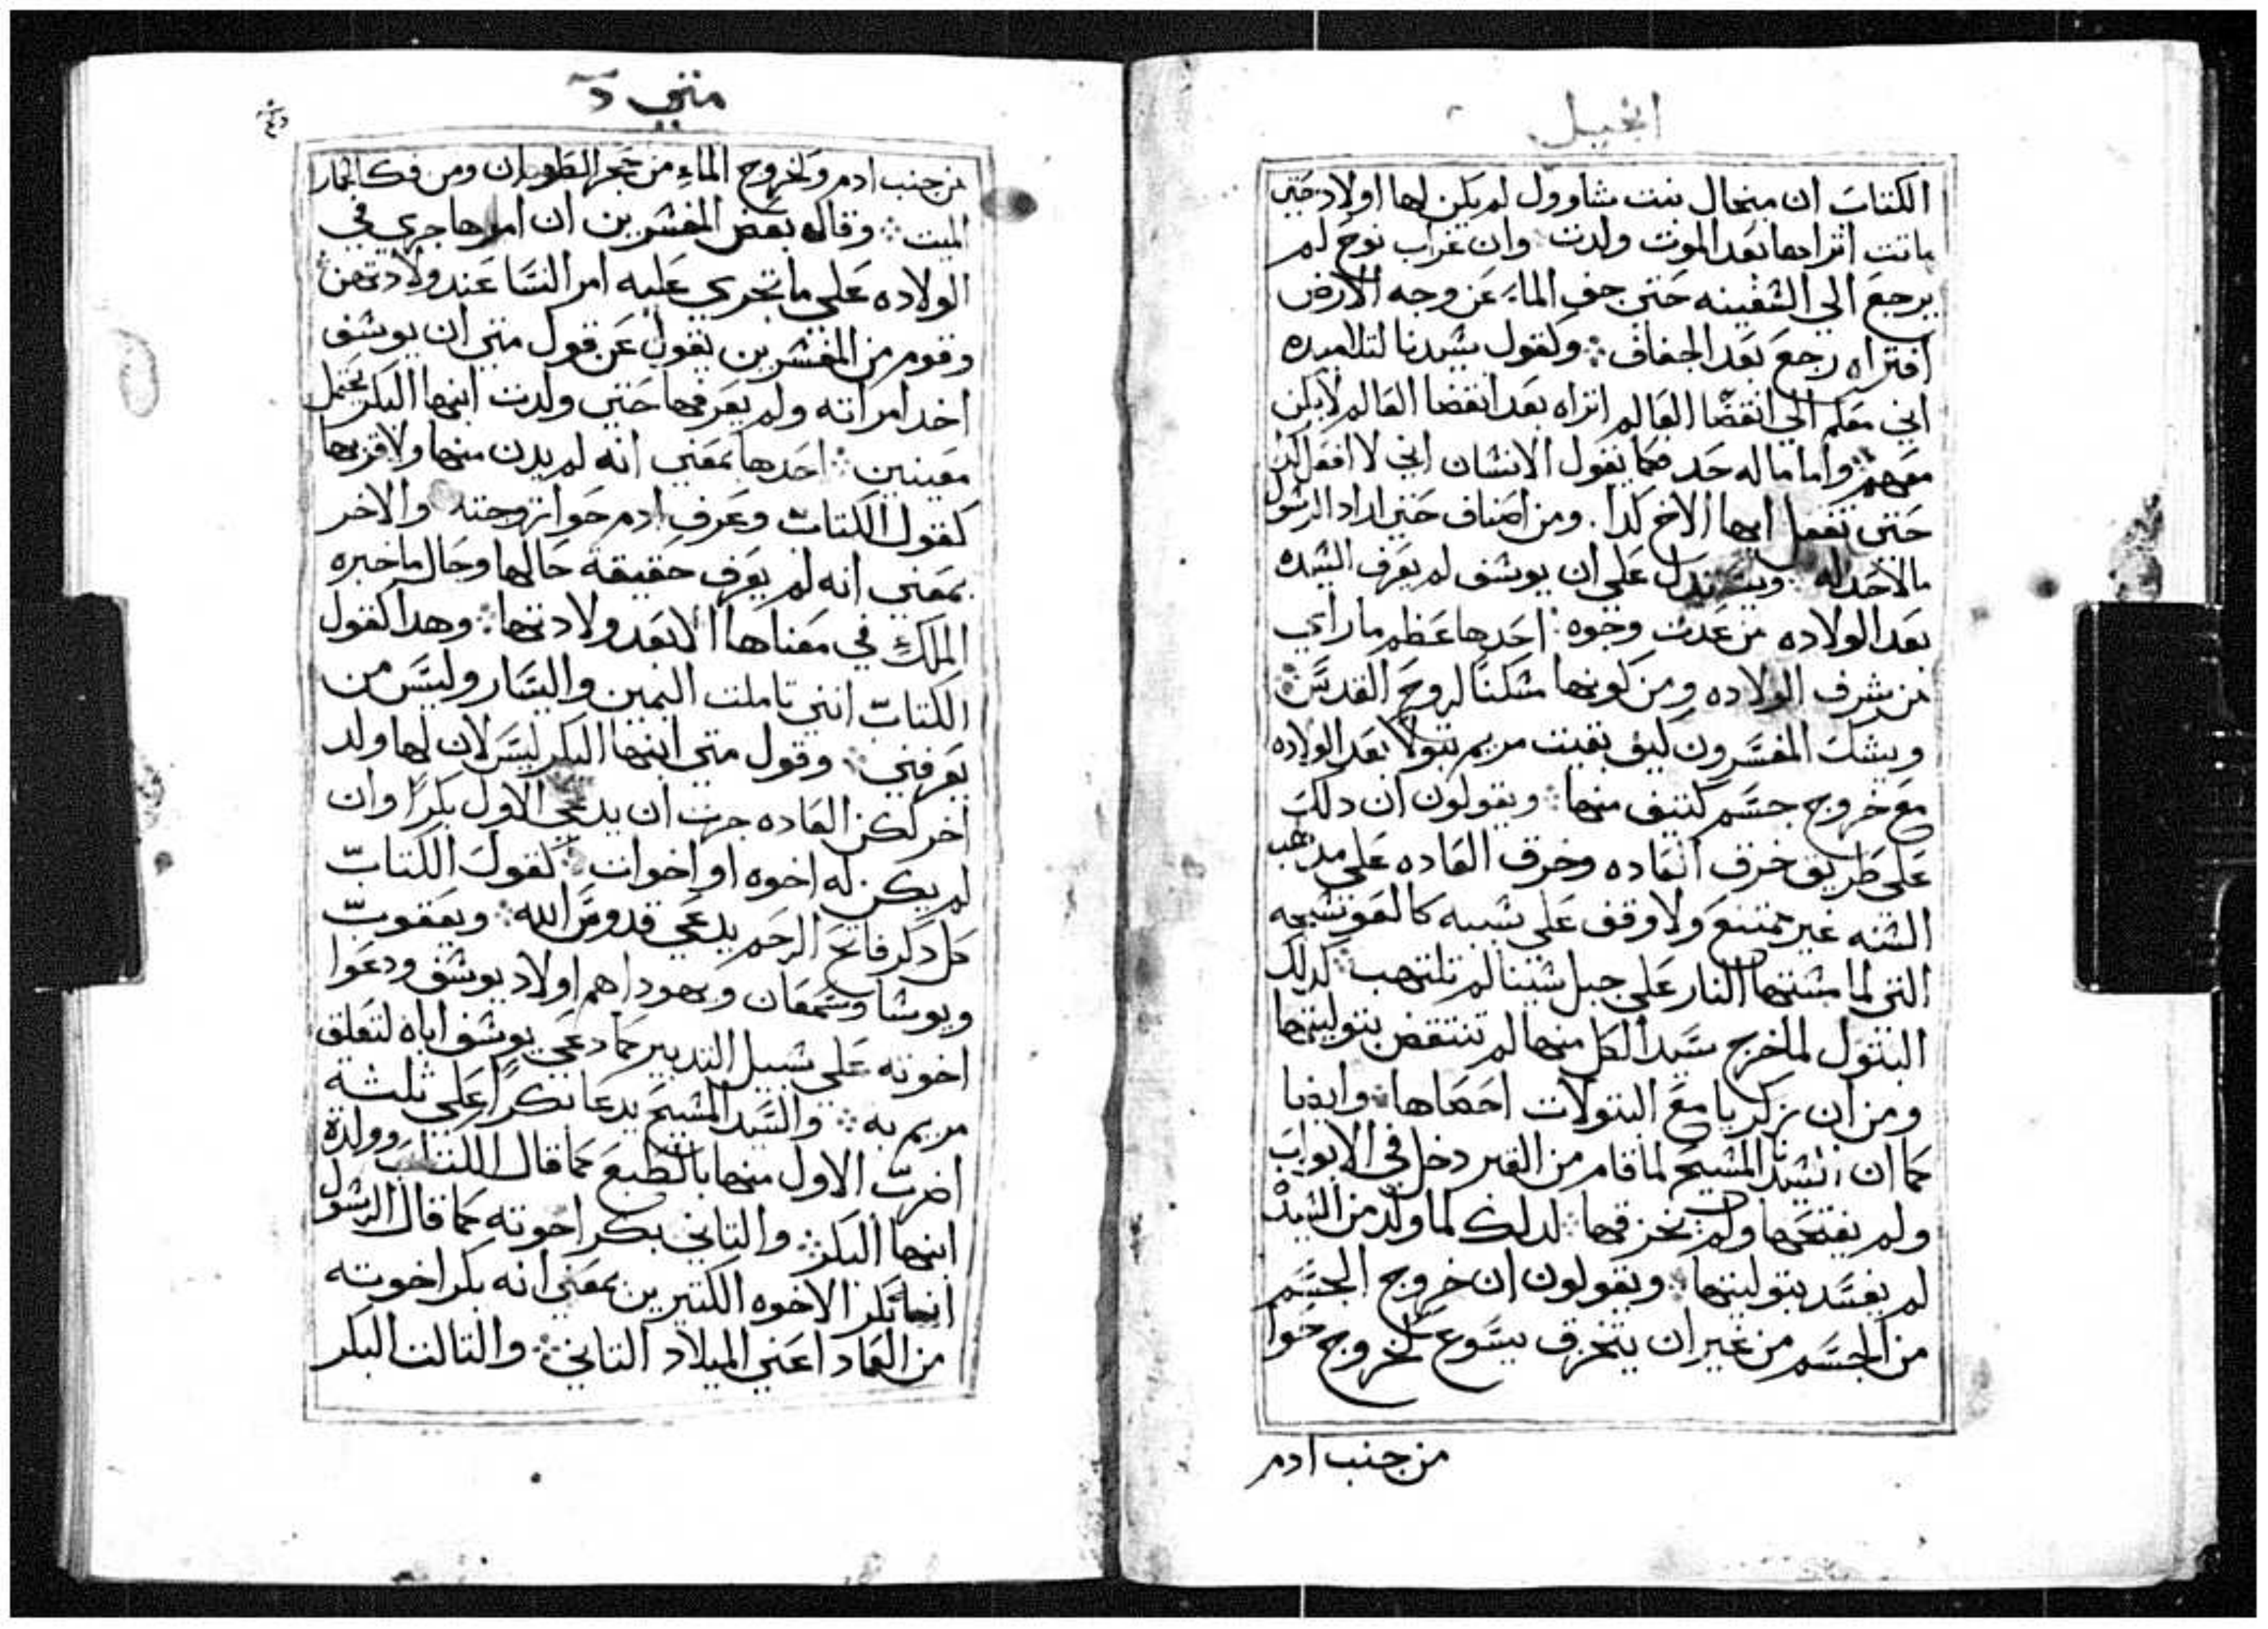 انجيل
الكتاب ان منحال بنت شاوول لم يكن لها اولاد حتى
ماتت اتراها بعد الموت ولدت وان غراب نوح لم
يرجع الي الشفينه حتى جف الماء عن وجه الارض
افتراه رجع بعد الجفاف ⁘ وكقول شيدنا لتلاميده
اني معكم الي انقضا العالم اتراه بعد انقضا العالم لا يكن
معهم ⁘ واما ماله حد فكما يقول الانشان اني لا افعل كذا
حتى تفعل ايها الاخ كدا . ومن اصناف حتى اراد الرشول
مالاحد له ⁘ ويستدل على ان يوشف لم يعرف الشيده
بعد الولاده من عدت وجوه ⁘ احدها عظم ما راي
من شرف الولاده ومن كونها مشكنا لروح القدس ⁘
ويشك المفسرون كيف بقيت مريم بتولا بعد الولاده
مع خروج جسم كتيف منها ⁘ ويقولون ان دلك
على طريق خرق العاده وخرق العاده على مدهب
الشنه غير ممتنع ولا وقف على شببه كالعوشجه
التي لما مشتها النار على جبل شينا لم تلتهب ⁘ كدلك
البتول لما خرج سيد الكل منها لم تنتقض بتوليتها
ومن ان زكريا مع البتولات احصاها ⁘ وايضا
كما ان شيدنا المشيح لما قام من القبر دخل في الابواب
ولم يفتحها ولم يخرقها ⁘ لدلك لما ولد من الشيده
لم يفسد بتوليتها ⁘ ويقولون ان خروج الجسم
من الجسم من غير ان يتخرق يسوع كخروج حوا
من جنب ادم
متى د
من جنب ادم وكخروج الماء من حجر الظوران ومن فك الحمار
الميت ⁘ وقال بعض المفشرين ان امرها جري في
الولاده على ما تجري عليه امر النسا عند ولادتهن
وقوم من المفشرين يقول عن قول متي ان يوشف
اخد امراته ولم يعرفها حتى ولدت ابنها البكر يحتمل
معنيين ⁘ احدها بمعني انه لم يدن منها ولا قربها
كقول الكتاب وعرف ادم حوا زوجته والاخر
بمعني انه لم يعرف حقيقة حالها وحال ما خبره
الملك في معناها الا بعد ولادتها ⁘ وهدا كقول
الكتاب انني تاملت اليمين واليسار وليس من
يعرفني ⁘ وقول متي ابنها البكر ليس لان لها ولد
اخر لكن العاده جرت ان يدعي الاول بكرا وان
لم يكن له اخوه او اخوات ⁘ كقول الكتاب
كل دكر فاتح الرحم يدعي قدوس الله ⁘ ويعقوب
ويوشا وشمعان ويهودا هم اولاد يوشف ودعوا
اخوته على شبيل التدبير كما دعي يوشف اباه لتعلق
مريم به ⁘ والسيد المشيح يدعا بكرا على ثلثة
اضرب الاول منها بالطبع كما قال الكتاب وولدة
ابنها البكر ⁘ والتاني بكر اخوته كما قال الرشول
انه بكر الاخوه الكتيرين بمعني انه بكر اخوته
من العماد اعني الميلاد التاني ⁘ والتالت البكر